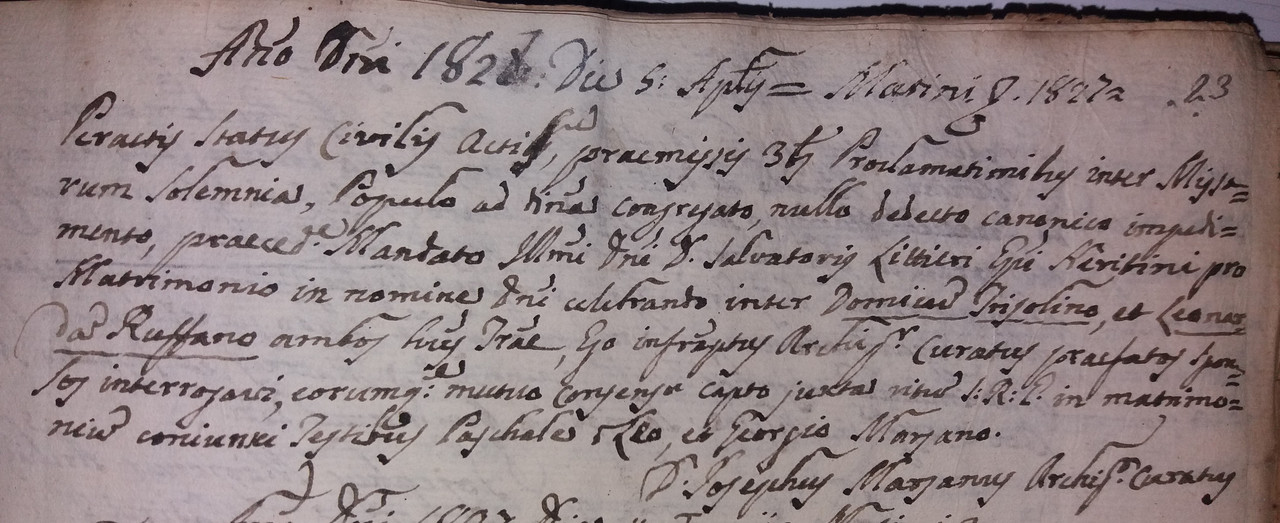 Año Dñi 1828. Die 5: Aplis = Matini g. 1827 23
Peractis Status Civilis Actis, praemissis 3bs Proclamationibus inter Missa=
rum Solemnia, Populo ad divina congregato, nullo detecto canonico impedi=
mento, praeced.te Mandato Illmi Dñi D. Salvatoris Lettieri Epi Neritini pro
Matrimonio in nomine Dñi celebrando inter Dominicũ Trisolino, et Leonar=
dã Ruffano ambos hujus Trae, Ego infraptus Archip.r Curatus praefatos spon=
sos interrogavi, eorumq.e mutuo consensu capto juxta ritũ S: R: E. in matrimo=
niũ coniunxi Testibus Paschale Leo, et Georgio Marsano.
D. Josephus Marsanus Archip.r Curatus